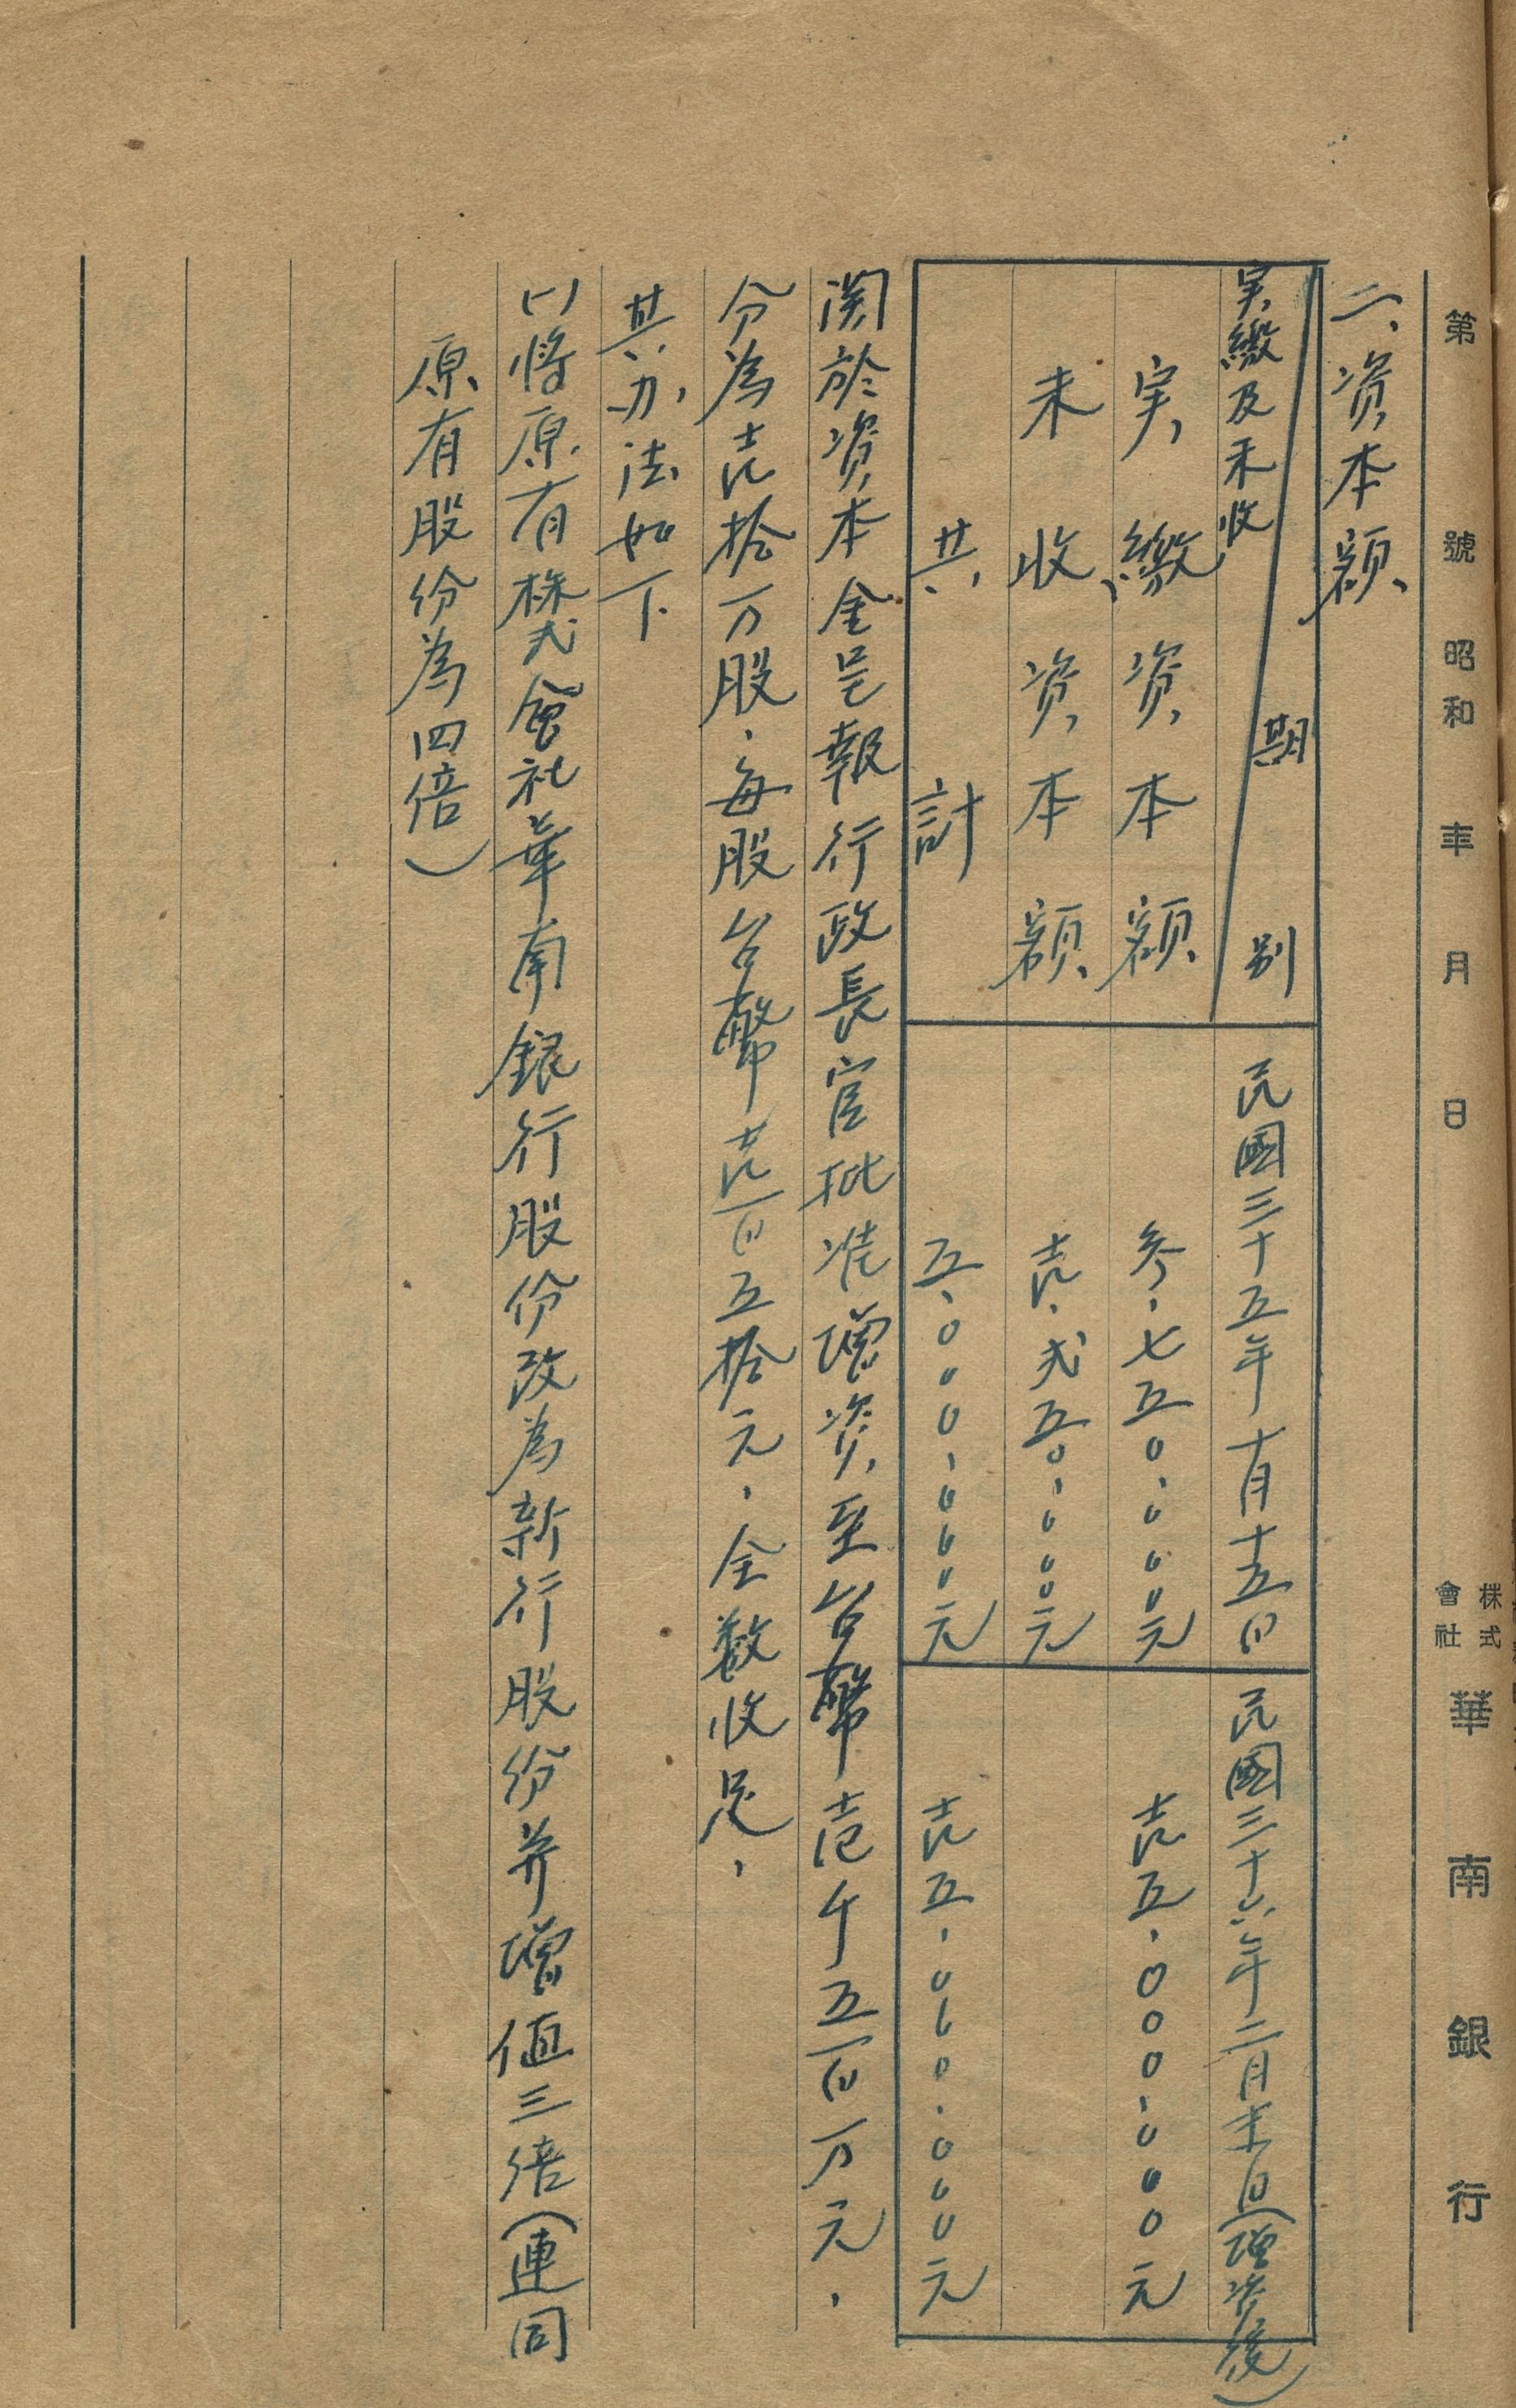 第 號 昭和 年 月 日 株式會社 華南銀行
二、資本額
実繳及未收 期別 民國三十五年十月十五日 民國三十六年二月末日(增资後)
実繳资本額 参、七五〇、〇〇〇元 壱五、〇〇〇、〇〇〇元
未收资本額 壱、弍五〇、〇〇〇元
共計 五、〇〇〇、〇〇〇元 壱五、〇〇〇、〇〇〇元
関於资本金呈報行政長官批准增资至台幣壱千五百万元、
分為壱拾万股、每股台幣壱百五拾元、全数收足、
其办法如下
(一)将原有株式會社華南銀行股份改為新行股份并增值三倍(連同
原有股份為四倍)